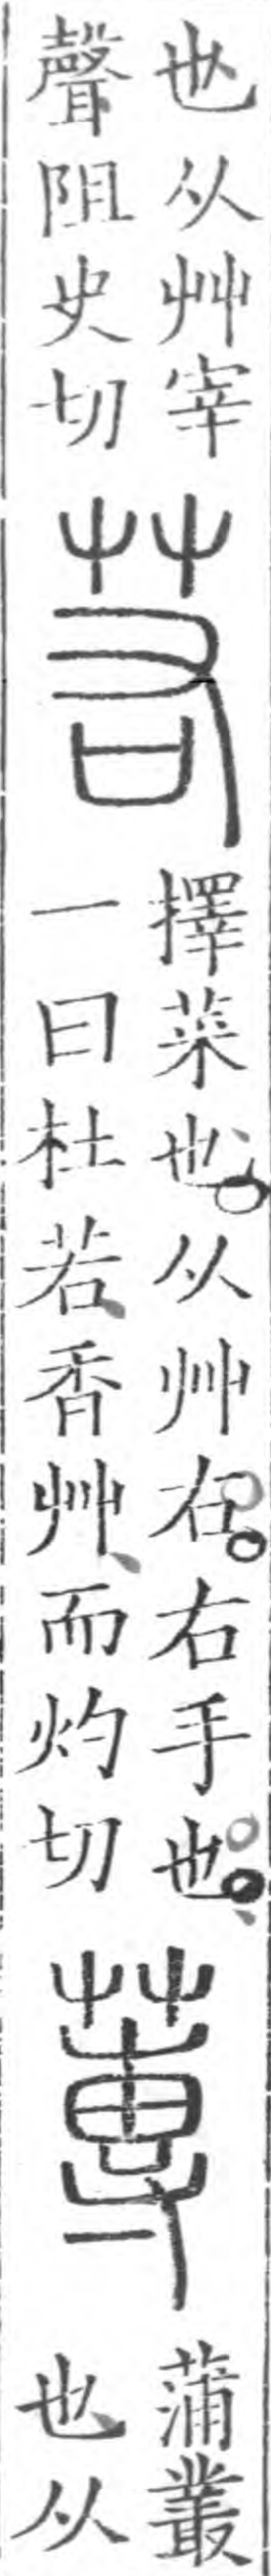 也从艸宰
聲阻史切
若
擇菜也从艸右右手也
一曰杜若香艸而灼切
蓴
蒲叢
也从